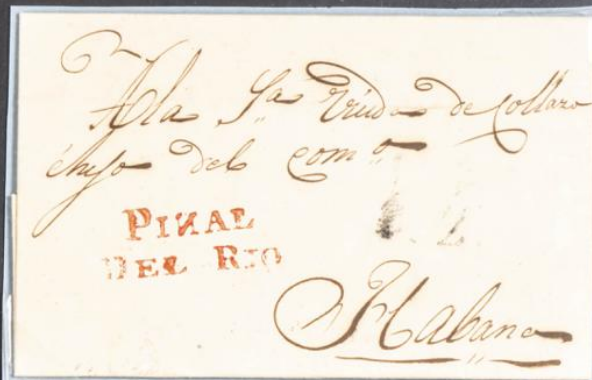 A la Sra Viuda de Collazo
é hijo del com.o
PINAL
DEL RIO
Habana